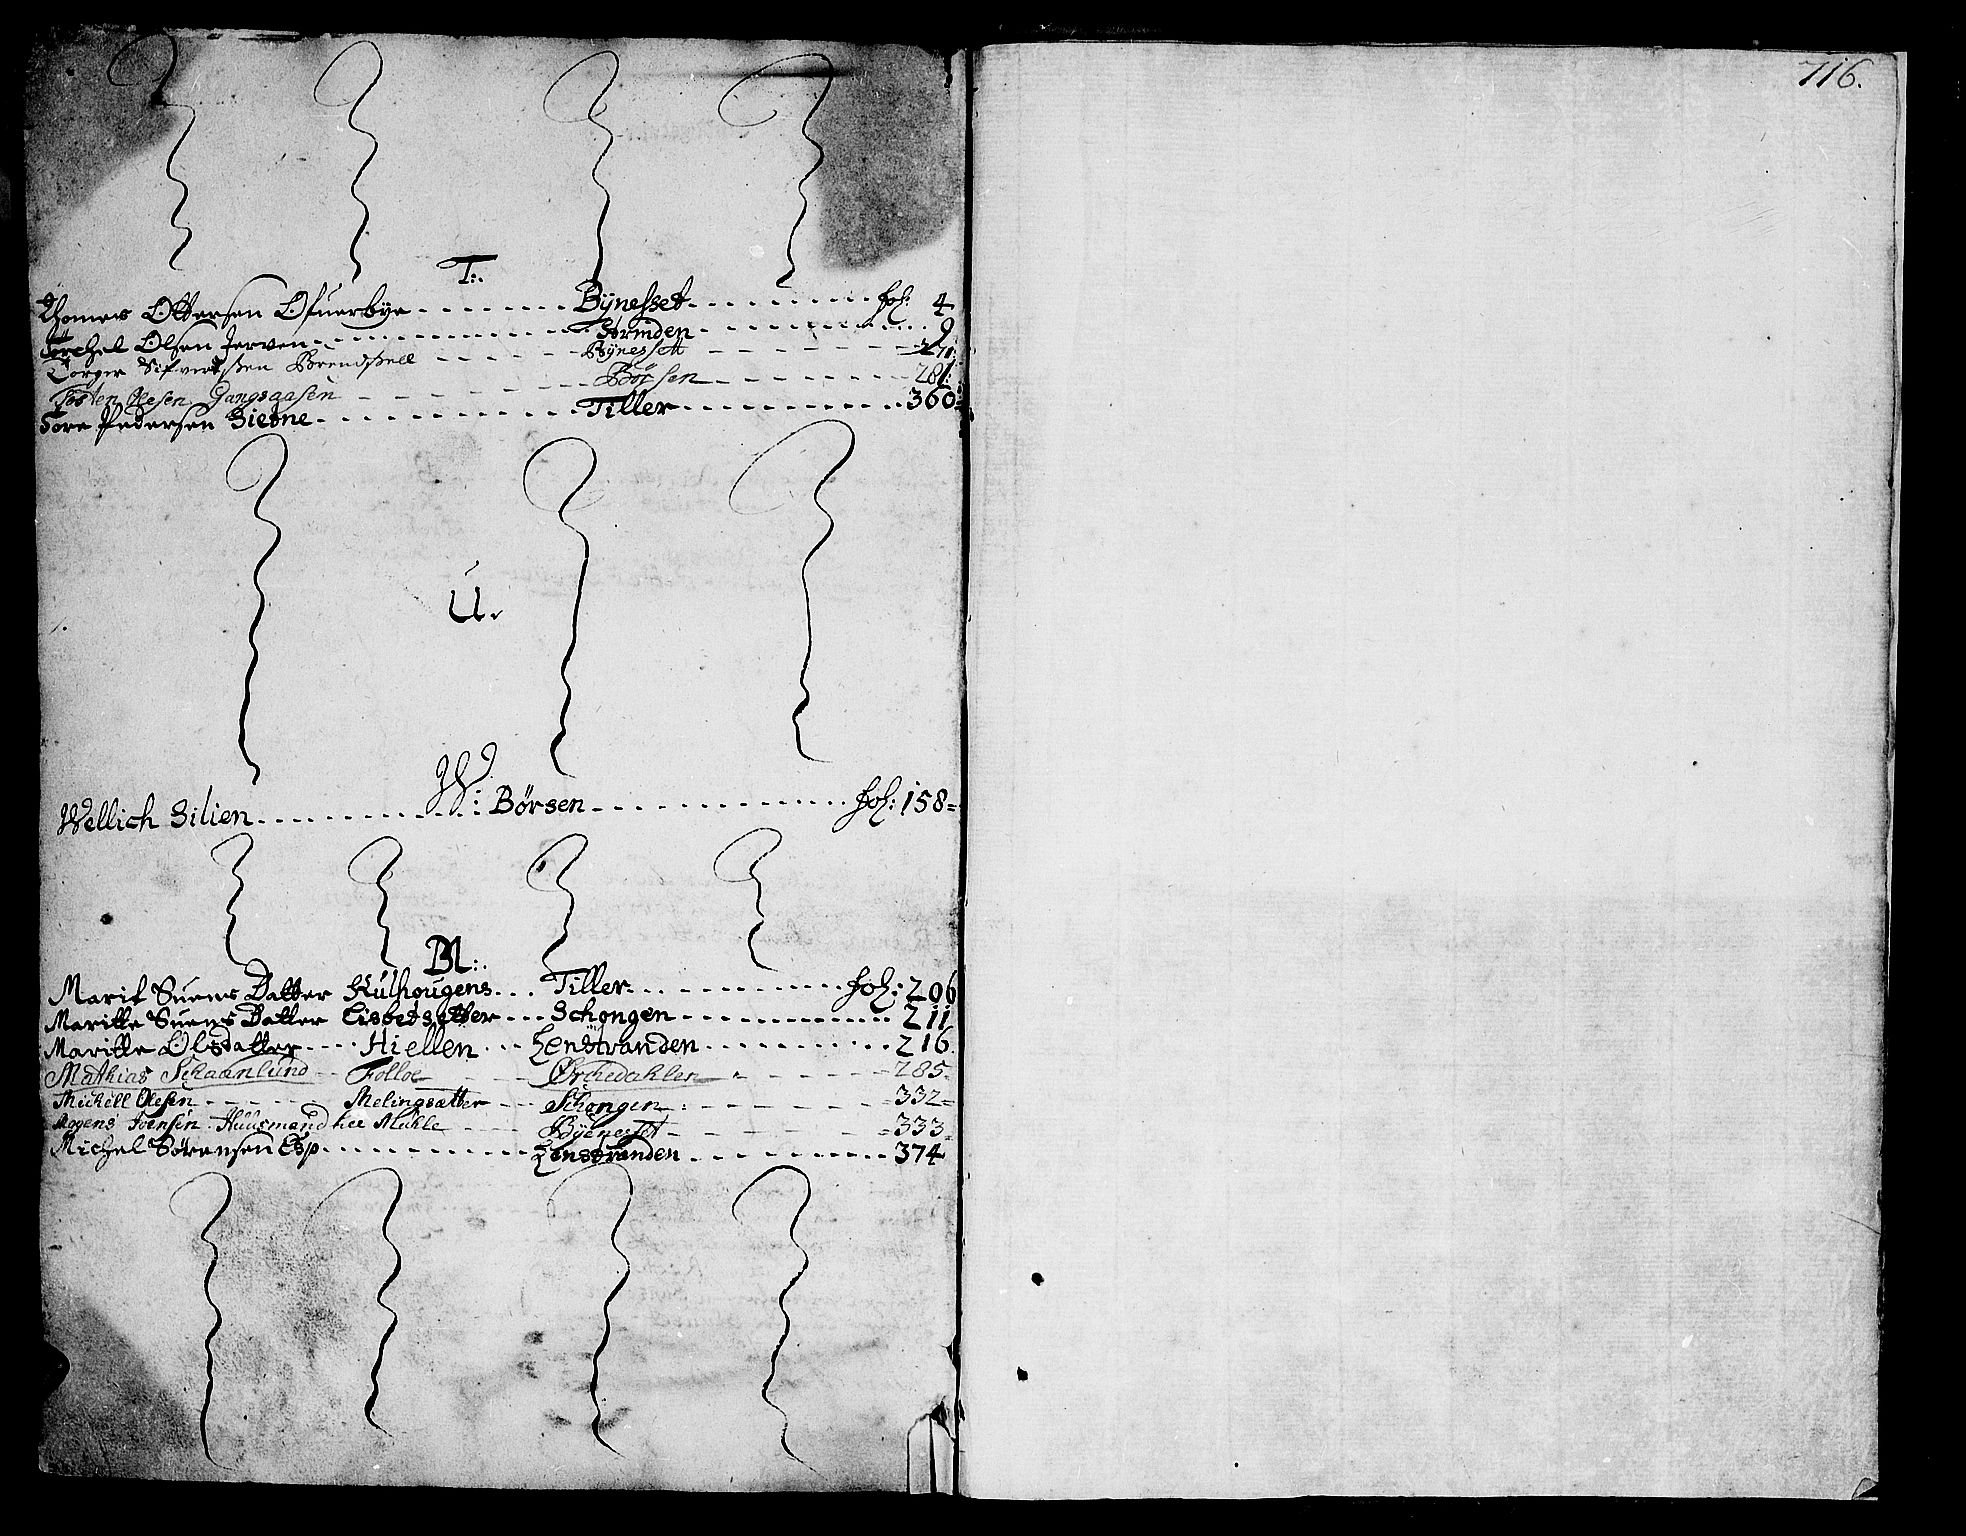 716.
T:.
Thomes Ottersen Ofuerbye Bÿnesset fol: 4
Torchel Olsen Jerven Strinden 9
Torger Sifvertßen Brendsæell Bÿnessett 271
Tosten Olesen Gangsaasen Börsen 281:
Tore Pedersen Sietne Tiller 360=
U.
W:
Wellich Silien Børsen fol: 158=
M:.
Marit Suens Datter Kulhougens Tiller fol: 206
Maritte Suens Datter Lisbetsetter Schongen 211
Maritte Olsdatter Hiellen Lenstranden 216.
Mathias Schaanlund Folloe Ørchedahlen 285
Mickell Olesen Melingsætter Schongen 332=
Mogens Joensen Huusmand hee Mühle Bÿenesset 333=
Michel Sørensen Esp Lenstranden 374